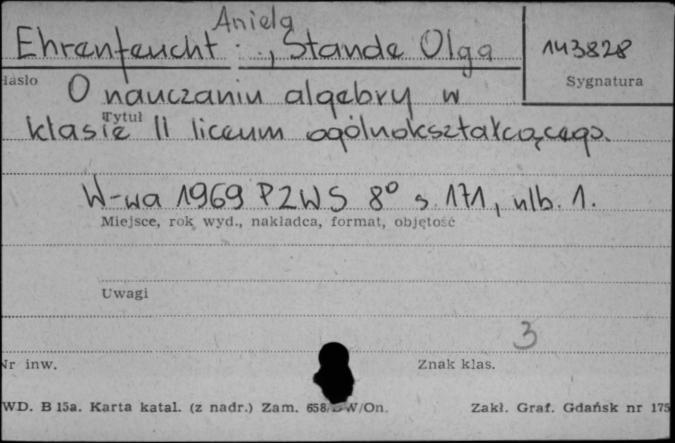 Aniela
Ehrenfeucht ., Stande Olga 143828
Hasło Sygnatura
O nauczaniu algebry w
Tytuł
klasie II liceum ogólnokształcącego.
W-wa 1969 PZWS 8° s. 171, nlb. 1.
Miejsce, rok wyd., nakładca, format, objętość
Uwagi
3
Nr inw. Znak klas.
WD. B 15a. Karta katal. (z nadr.) Zam. W/On. Zakł. Graf. Gdańsk nr 175